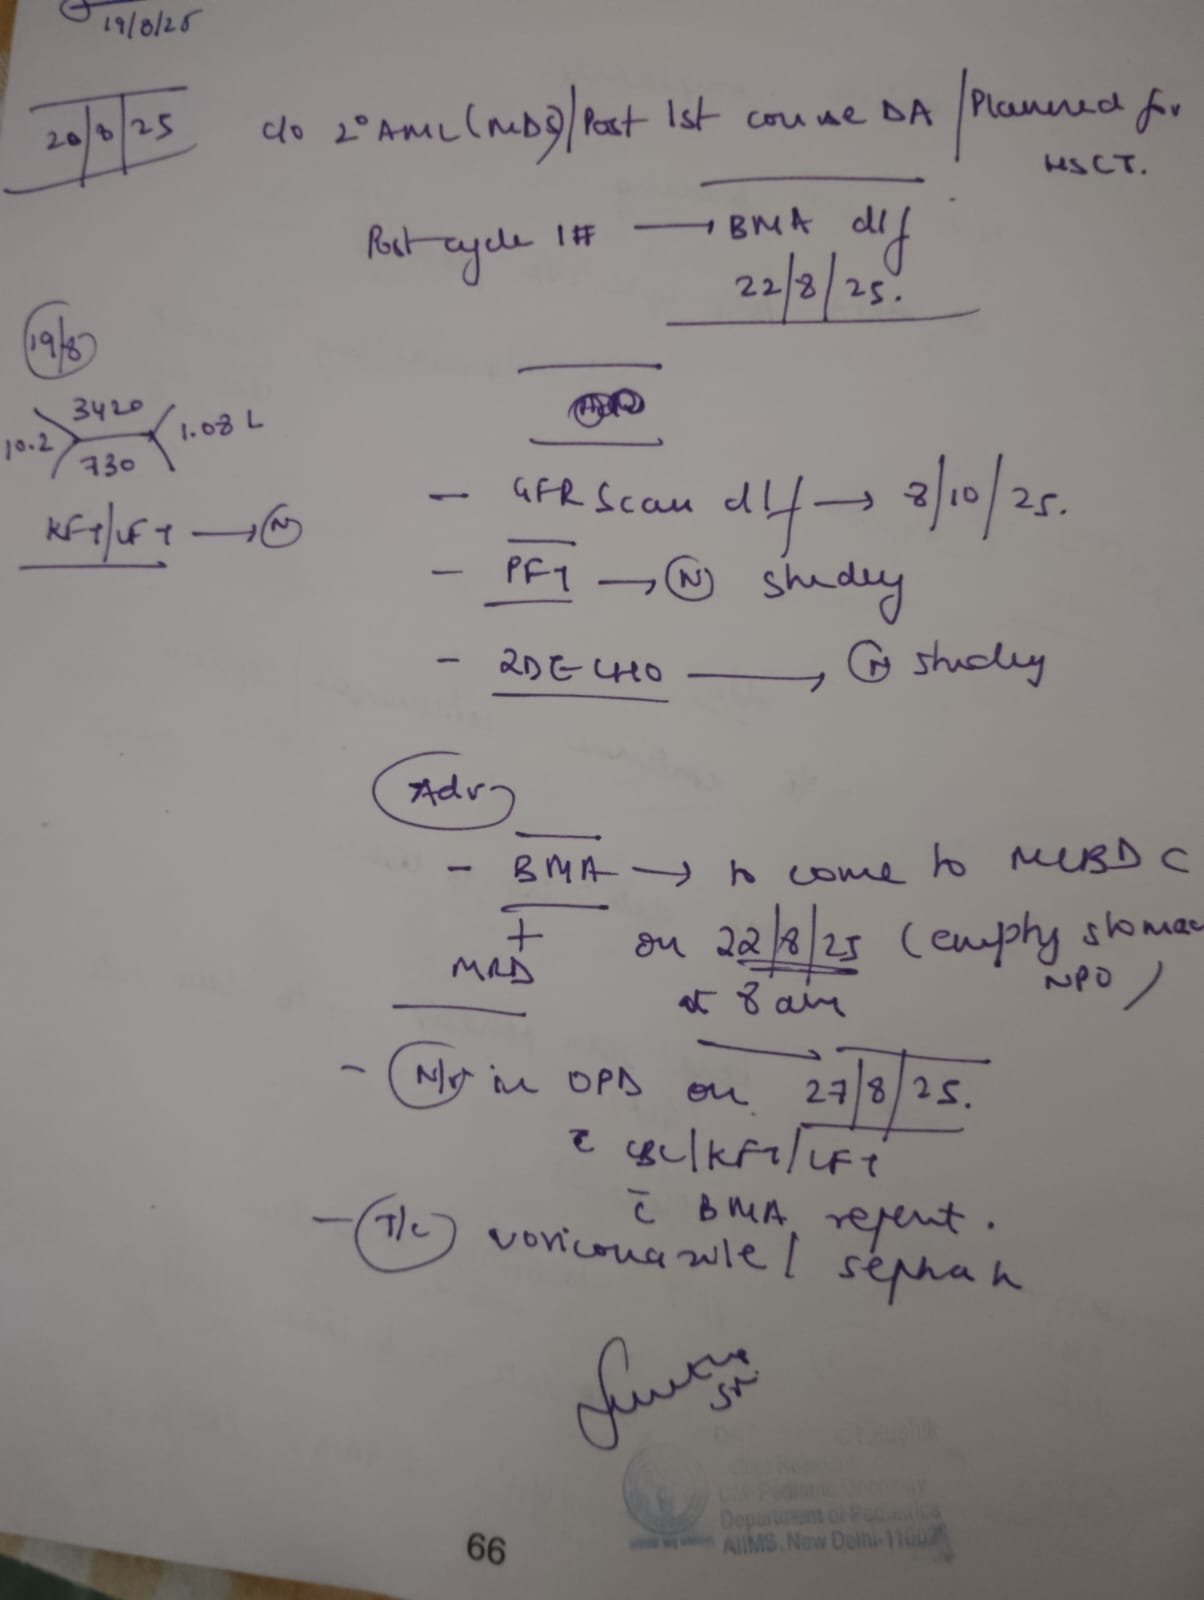 19/8/25
20/8/25 c/o 2° AML (MDS)/Post 1st course DA / Planned for
HSCT.
Post cycle 1# → BMA d/f
22/8/25.
19/8
10.2 3420 1.08 L
730
KFT/LFT → N
- GFR Scan d/f → 8/10/25.
- PFT → N study
- 2D ECHO → N study
Adv
- BMA → to come to MCBDC
+ on 22/8/25 (empty stomac
MRD NPO)
at 8 am
- N/v in OPD on 27/8/25.
c̄ CBC/KFT/LFT
c̄ BMA report.
- T/c voriconazole / septran
SR
DM Pediatric Oncology
Department of Pediatrics
AIIMS, New Delhi-110029
66